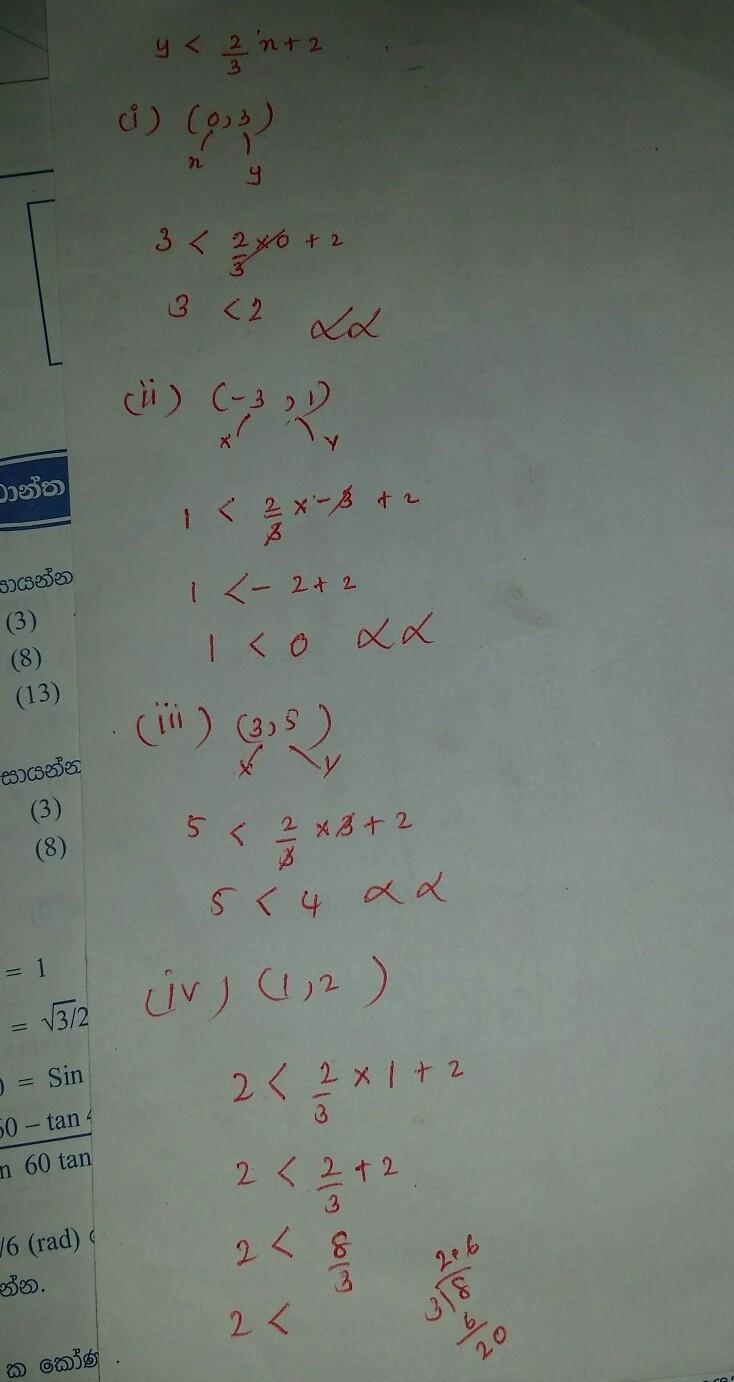 y < 2/3 x + 2
(i) (0, 3)
x y
3 < 2/3 × 0 + 2
3 < 2 αα
(ii) (-3, 1)
x y
1 < 2/3 × -3 + 2
1 < - 2 + 2
1 < 0 αα
(iii) (3, 5)
x y
5 < 2/3 × 3 + 2
5 < 4 αα
(iv) (1, 2)
2 < 2/3 × 1 + 2
2 < 2/3 + 2
2 < 8/3
2 <
2.6
3)8
6
20
(3)
(8)
(13)
(3)
(8)
= 1
= √3/2
= Sin
60 – tan
60 tan
/6 (rad)
න්න.
ක කෝණ